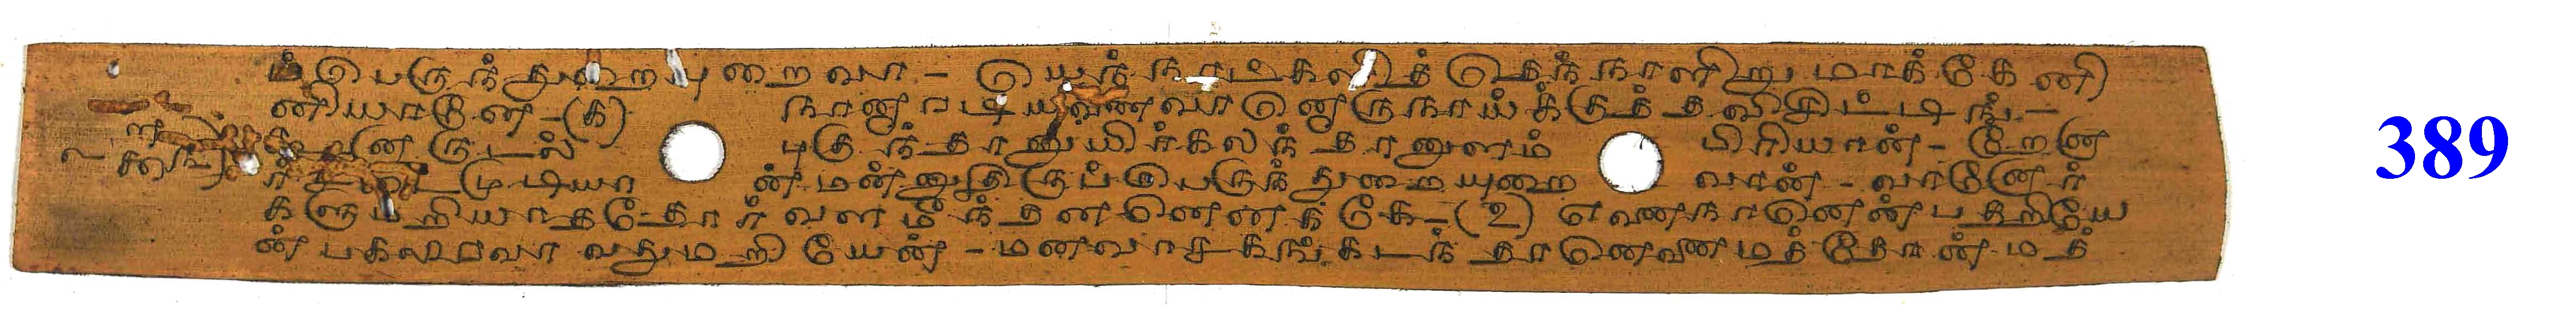 ம்பெருந்துறையுறைவா - யெந்நாட்களித் தெந்நாளிறுமாக்கேனி
னியானே - (க) நானாரடியணைவானொருநாய்க்குத்தவிசிட்டிங் -
கூனருடல் புகுந்தானுயிர்கலந்தானுளம் பிரியான் - றேன
ர் சடைமுடியான் மன்னுதிருப்பெருந்துறையுறைவான் - வானோர்
களுமறியாததோர்வளமீந்தனனெனக்கே - (உ) எனைநானென்பதறியே
ன் பகலிரவாவதுமறியேன் - மனவாசகங்கடந்தானெனைமத்தோன்மத்
389